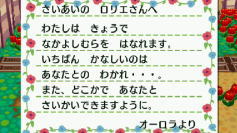 さいあいの ロリエさんへ
わたしは きょうで
なかよしむらを はなれます。
いちばん かなしいのは
あなたとの わかれ・・・。
また、どこかで あなたと
さいかいできますように。
オーロラより